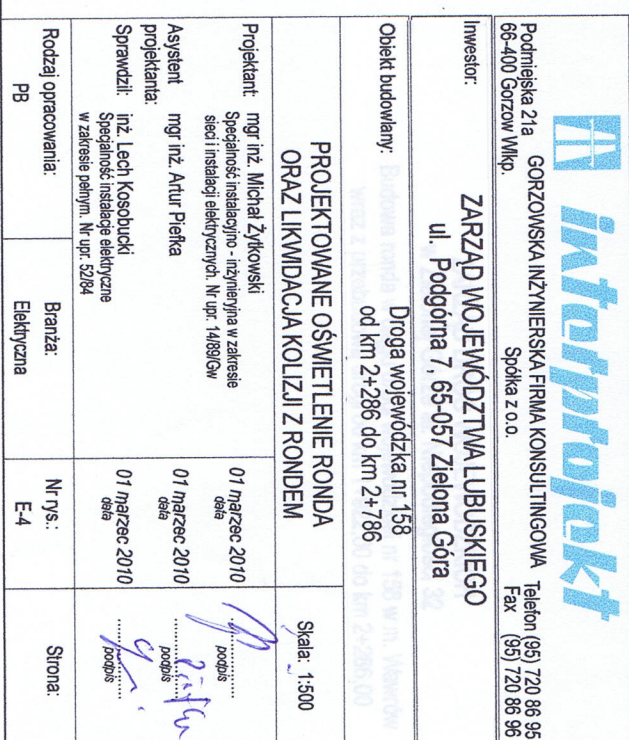 interprojekt
Podmiejska 21a
66-400 Gorzow Wlkp.
GORZOWSKA INŻYNIERSKA FIRMA KONSULTINGOWA
Spółka z o.o.
Telefon (95) 720 86 95
Fax (95) 720 86 96
Inwestor:
ZARZĄD WOJEWÓDZTWA LUBUSKIEGO
ul. Podgórna 7, 65-057 Zielona Góra
Obiekt budowlany:
Droga wojewódzka nr 158
od km 2+286 do km 2+786
PROJEKTOWANE OŚWIETLENIE RONDA
ORAZ LIKWIDACJA KOLIZJI Z RONDEM
Skala: 1:500
Projektant: mgr inż. Michał Żytkowski
Specjalność instalacyjno - inżynieryjna w zakresie
sieci i instalacji elektrycznych. Nr upr. 14/89/Gw
01 marzec 2010
data
podpis
Asystent mgr inż. Artur Piefka
projektanta:
01 marzec 2010
data
podpis
Sprawdził: inż. Lech Kosobucki
Specjalność instalacje elektryczne
w zakresie pełnym. Nr upr. 52/84
01 marzec 2010
data
podpis
Rodzaj opracowania:
PB
Branża:
Elektryczna
Nr rys.:
E-4
Strona: